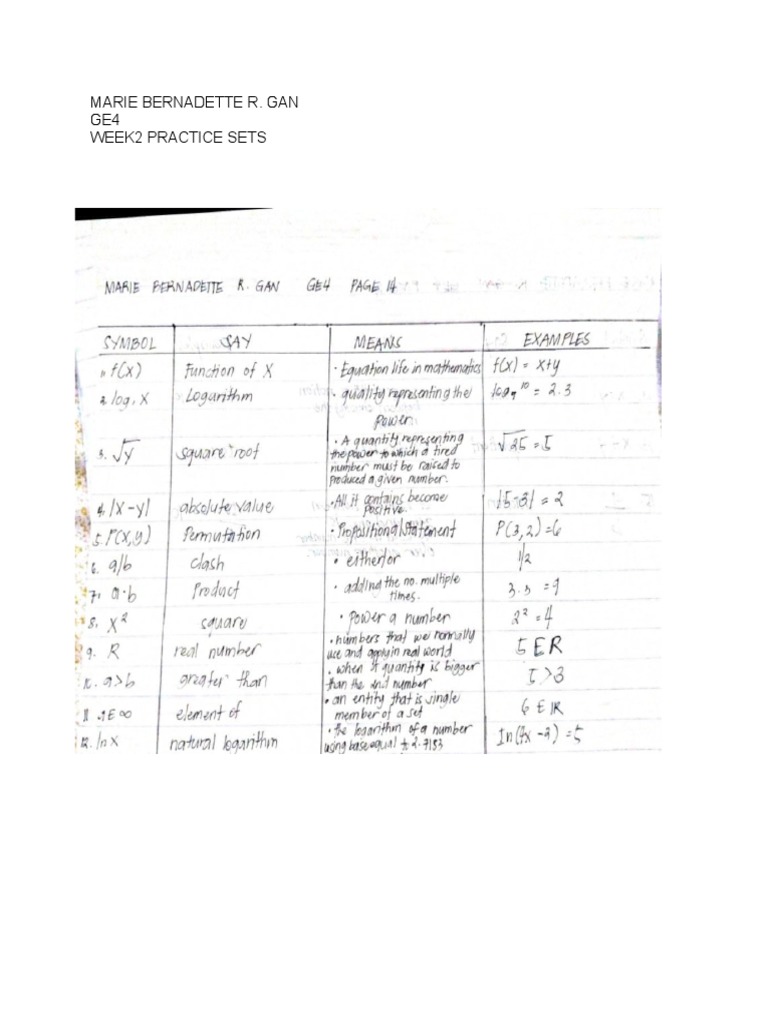 MARIE BERNADETTE R. GAN
GE4
WEEK2 PRACTICE SETS
MARIE BERNADETTE R. GAN GE4 PAGE 14
SYMBOL SAY MEANS EXAMPLES
1. f(x) Function of X • Equation life in mathematics f(x) = x+y
2. log, x Logarithm • quality representing the power
3. √y square root • A quantity representing the power to which a tired number must be raised to produced a given number. √25 = 5
4. |x-y| absolute value • All it contains become positive. |5-3| = 2
5. P(x,y) Permutation • Propositional Statement P(3,2)=6
6. a/b clash • either/or 1/2
7. a·b Product • adding the no. multiple times. 3.3 = 9
8. X² square • power a number 2² = 4
9. R real number • numbers that we normally use and apply in real world 5 ∈ R
10. a>b greater than • when x quantity is bigger than the 2nd number 5 > 3
11. element of • an entity that is single member of a set 6 ∈ IR
12. ln x natural logarithm • the logarithm of a number using base equal